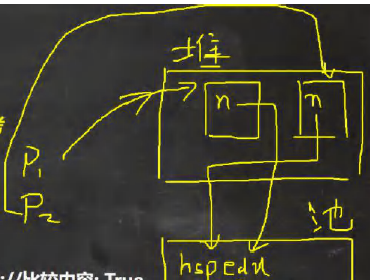 堆
n n
P1
P2
池
hspedu
://比较内容: True